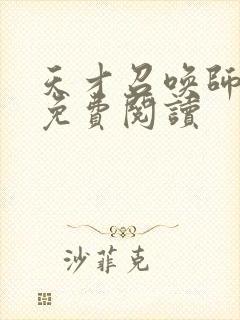 天才召喚師
免費閱讀
沙菲克